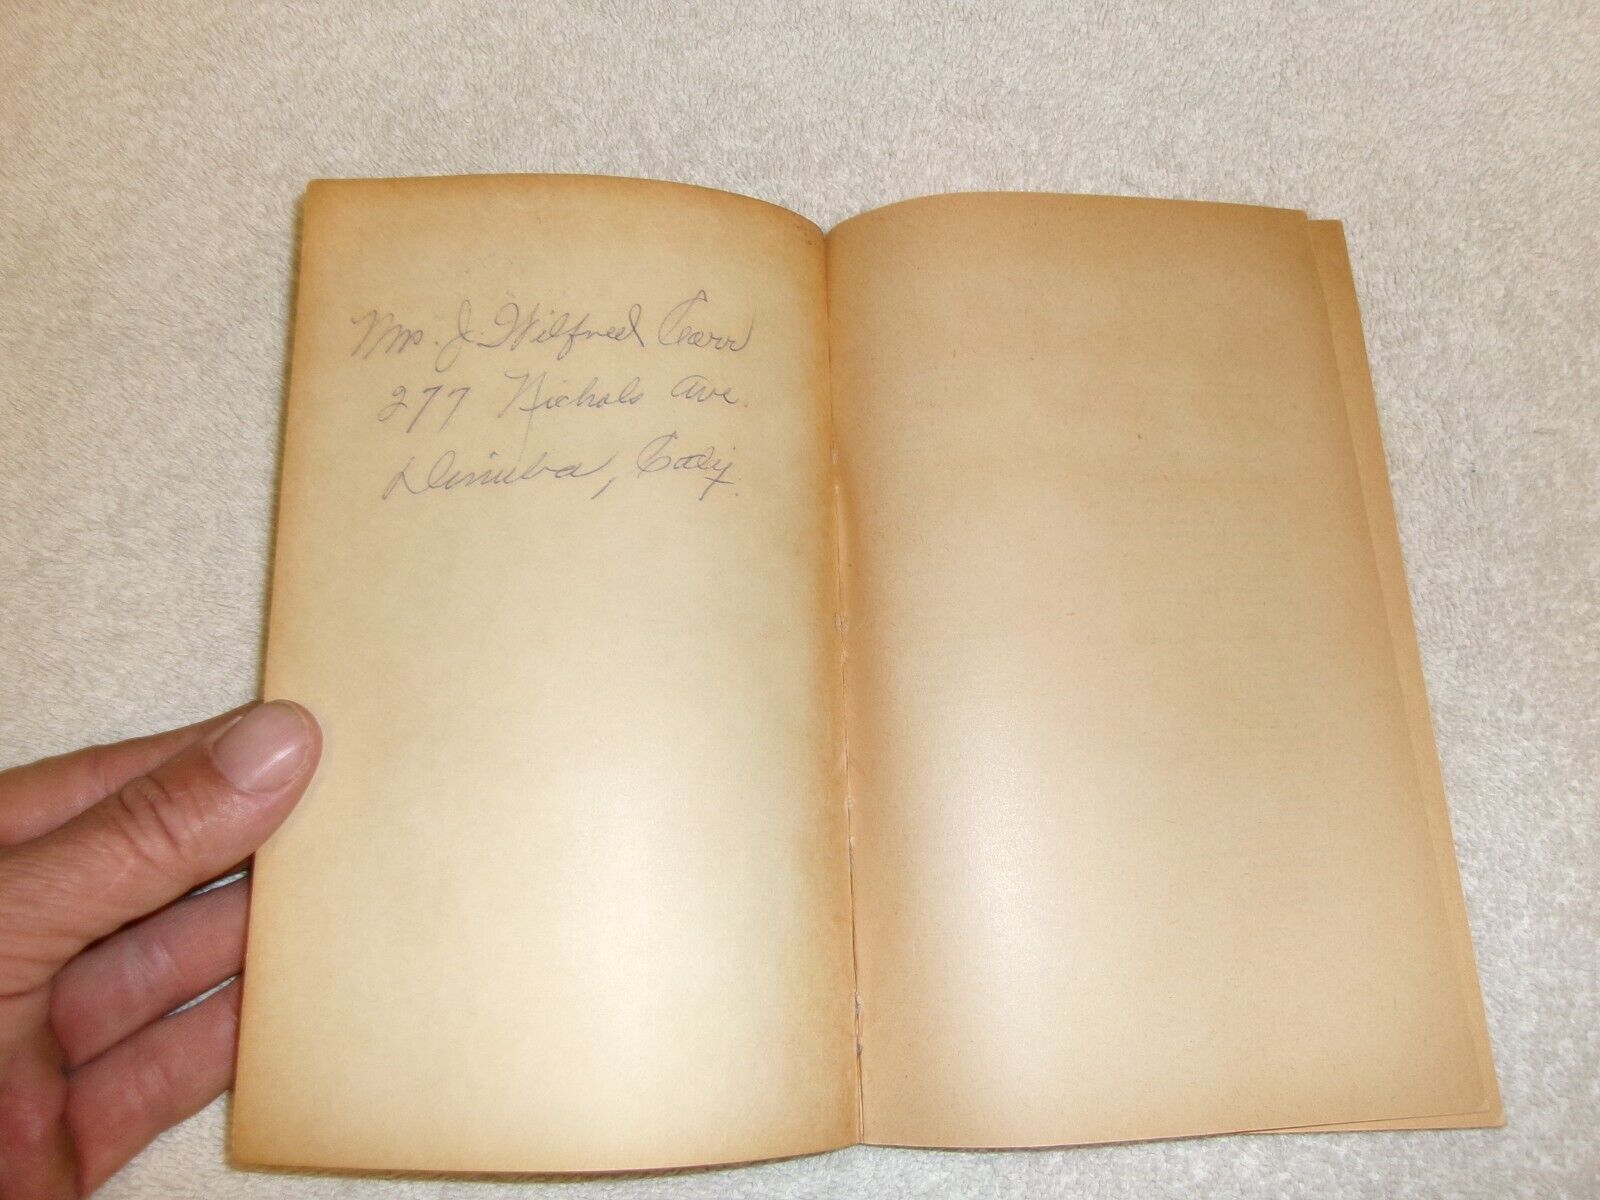 Mrs. J. Wilfred Carr
277 Nichols Ave.
Dinuba, Calif.